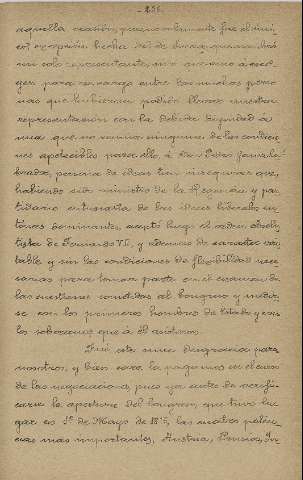 - 236. -
aquella ocasión, pues solamente fué el
excepción hecha de
un solo representante, no a
gen para encargar entre las muchas perso
nas que hubieran podido llevar nuestra
representación con la debida dignidad á
una que no reunía ninguna de las condicio
nes apetecibles para ello á Don Pedro Gomez La
brador, persona de ideas tan inseguras que,
habiendo sido ministro de la Regencia y par
tidario entusiasta de las ideas liberales en
tonces dominantes, aceptó luego el orden absolu
tista de Fernando VII, y además de carácter
table y sin las condiciones de flexibilidad nece
sarias para tomar parte en el examen de
las cuestiones sometidas al Congreso y
se con los primeros hombres de Estado y con
los soberanos que á él asistieron.
Fué esta una desgracia para
nosotros, y bien cara la pagamos en el curso
de las negociaciones, pues ya antes de verifi
carse la apertura del Congreso, que tuvo lu
gar en 1º de Mayo de 1815, las cuatro poten
cias más importantes, Austria, Prusia, In